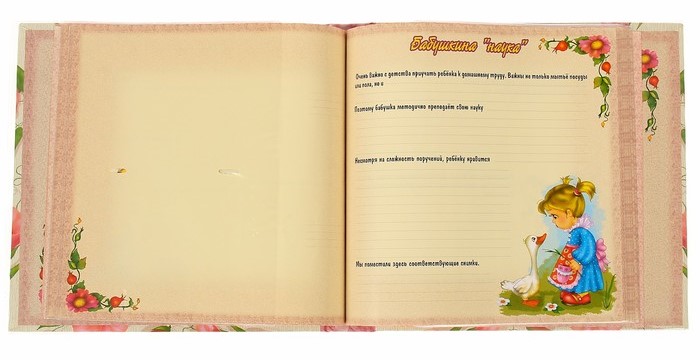 Бабушкина "наука"
Очень важно с детства приучить ребёнка к домашнему труду. Важны не только мытьё посуды
или пола, но и
Поэтому бабушка методично преподаёт свою науку
Несмотря на сложность поручений, ребёнку нравится
Мы поместили здесь соответствующие снимки.